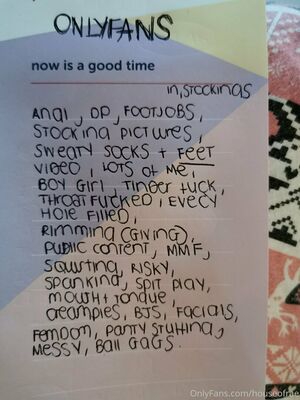 ONLYFANS
now is a good time
in, STOCKINGS
Anal, DP, FOOTJOBS,
STOCKING PICTURES,
SWEATY SOCKS + FEET
VIDEO, LOTS OF ME,
BOY GIRL, TINDER FUCK,
THROAT FUCKED, EVERY
HOLE FILLED,
RIMMING (GIVING),
PUBLIC CONTENT, MMF,
SQUIRTING, RISKY,
SPANKING, SPIT PLAY,
MOUTH + TONGUE,
CREAMPIES, BJS, FACIALS,
FEMDOM, PANTY STUFFING,
MESSY, BALL GAGS.
OnlyFans.com/houseofrae